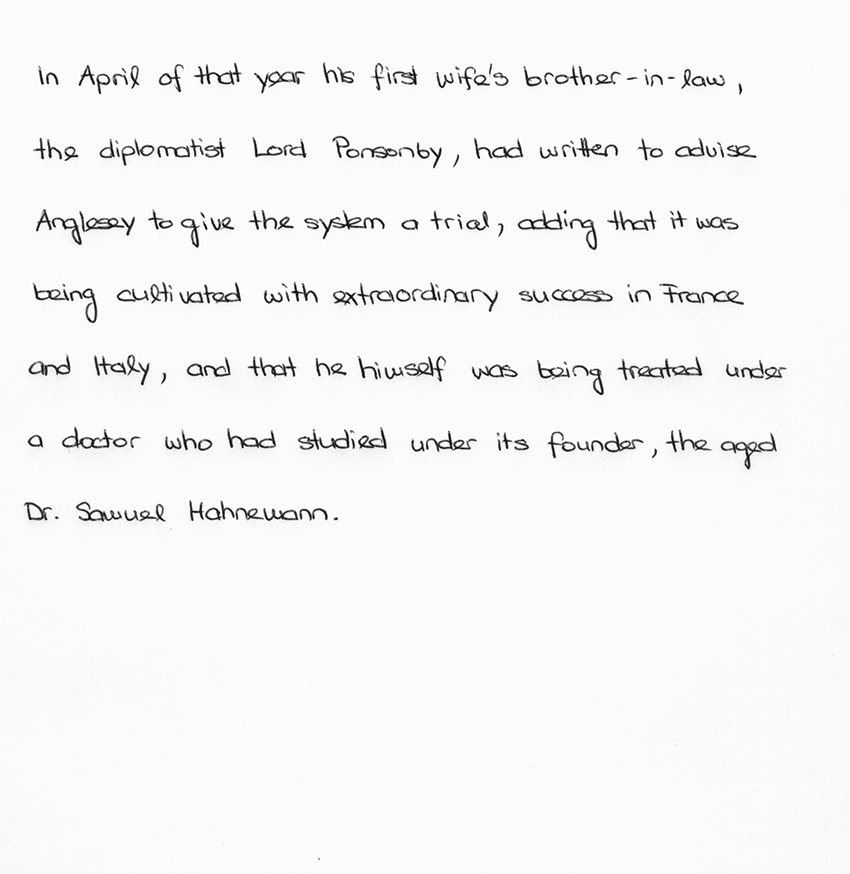 In April of that year his first wife's brother-in-law,
the diplomatist Lord Ponsonby, had written to advise
Anglesey to give the system a trial, adding that it was
being cultivated with extraordinary success in France
and Italy, and that he himself was being treated under
a doctor who had studied under its founder, the aged
Dr. Samuel Hahnemann.